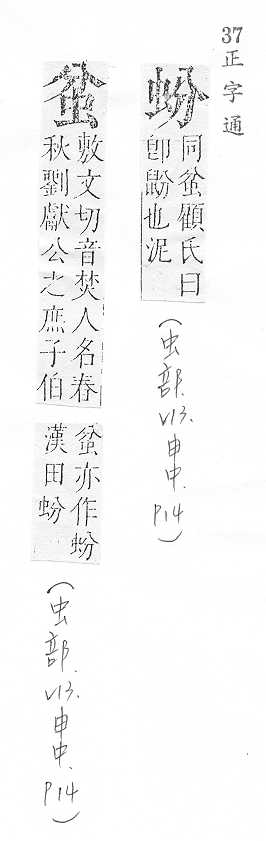 37 正字通
蚡
同蚠顧氏曰
卽鼢也泥
(虫部. v13. 申中. P14)
蚠
敷文切音焚人名春
秋劉獻公之庶子伯
蚠亦作蚡
漢田蚡
(虫部. v13. 申中. P14)